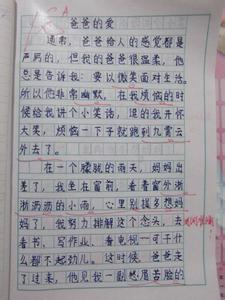 爸爸的爱
通常，爸爸给人的感觉都是
严厉的，但我的爸爸很温柔，他
总是告诉我：要以微笑面对生活。
所以他非常幽默，在我烦恼的时
候给我讲个小笑话，乐的我开怀
大笑，烦恼一下子就跑到九霄云
外去了。
在一个朦胧的雨天，妈妈出
差了，我坐在窗前，看着窗外淅
淅沥沥的小雨，心里别提多想妈
妈了，我努力排解这个念头，去
看书、写作业、看电视可干什
么都不起劲儿。这时候，爸爸走
了过来，他见我一副愁眉苦脸的